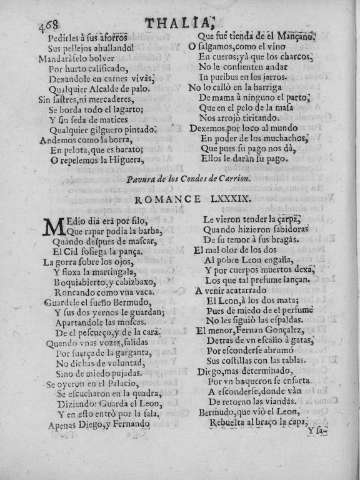 468 THALIA,
Pedirles à sus aforros
Sus pellejos ahullando!
Mandaráselo bolver
Por hurto calificado,
Dexandole en carnes vivas,
Qualquier Alcalde de palo.
Sin sastres, ni mercaderes,
Se borda todo el lagarto;
Y sin seda de matices
Qualquier gilguero pintado.
Andemos como la borra,
En pelota, que es barato;
O repelemos la Higuera,
Que fuè tienda de el Mançano.
O salgamos, como el vino
En cueros, yà que los charcos,
No le consienten andar
In puribus en los jarros.
No lo callò en la barriga
De mama à ninguno el parto,
Que en el pelo de la masa
Nos arrojò tiritando.
Dexemos por loco al mundo
En poder de los muchachos,
Que pues su pago nos dà,
Ellos le daràn su pago.
Pavura de los Condes de Carrion.
ROMANCE LXXXIX.
Medio dia era por filo,
Que rapar podia la barba,
Quando despues de mascar,
El Cid sosiega la pança.
La gorra sobre los ojos,
Y floxa la martingala,
Boquiabierto, y cabizbaxo,
Roncando como vna vaca.
Guardale el sueño Bermudo,
Y sus dos yernos le guardan;
Apartandole las moscas
De el pescueço, y de la cara.
Quando vnas vozes, salidas
Por fuerça de la garganta,
No dichas de voluntad,
Sino de miedo pujadas.
Se oyeron en el Palacio,
Se escucharon en la quadra,
Diziendo: Guarda el Leon,
Y en esto entrò por la sala.
Apenas Diego, y Fernando
Le vieron tender la çarpa,
Quando hizieron sabidoras
De su temor à sus bragas.
El mal olor de los dos
Al pobre Leon engaña,
Y por cuerpos muertos dexa,
Los que tal presume lançan.
A venir acatarrado
El Leon, à los dos mata;
Pues de miedo de el perfume
No les siguiò las espaldas.
El menor, Fernan Gonçalez,
Detras de vn escaño à gatas,
Por esconderse abrumò
Sus costillas con las tablas.
Diego, mas determinado,
Por vn baqueron se ensarta
A esconderse, donde vàn
De retorno las viandas.
Bermudo, que viò el Leon,
Rebuelta al braço la capa,
Y sa-